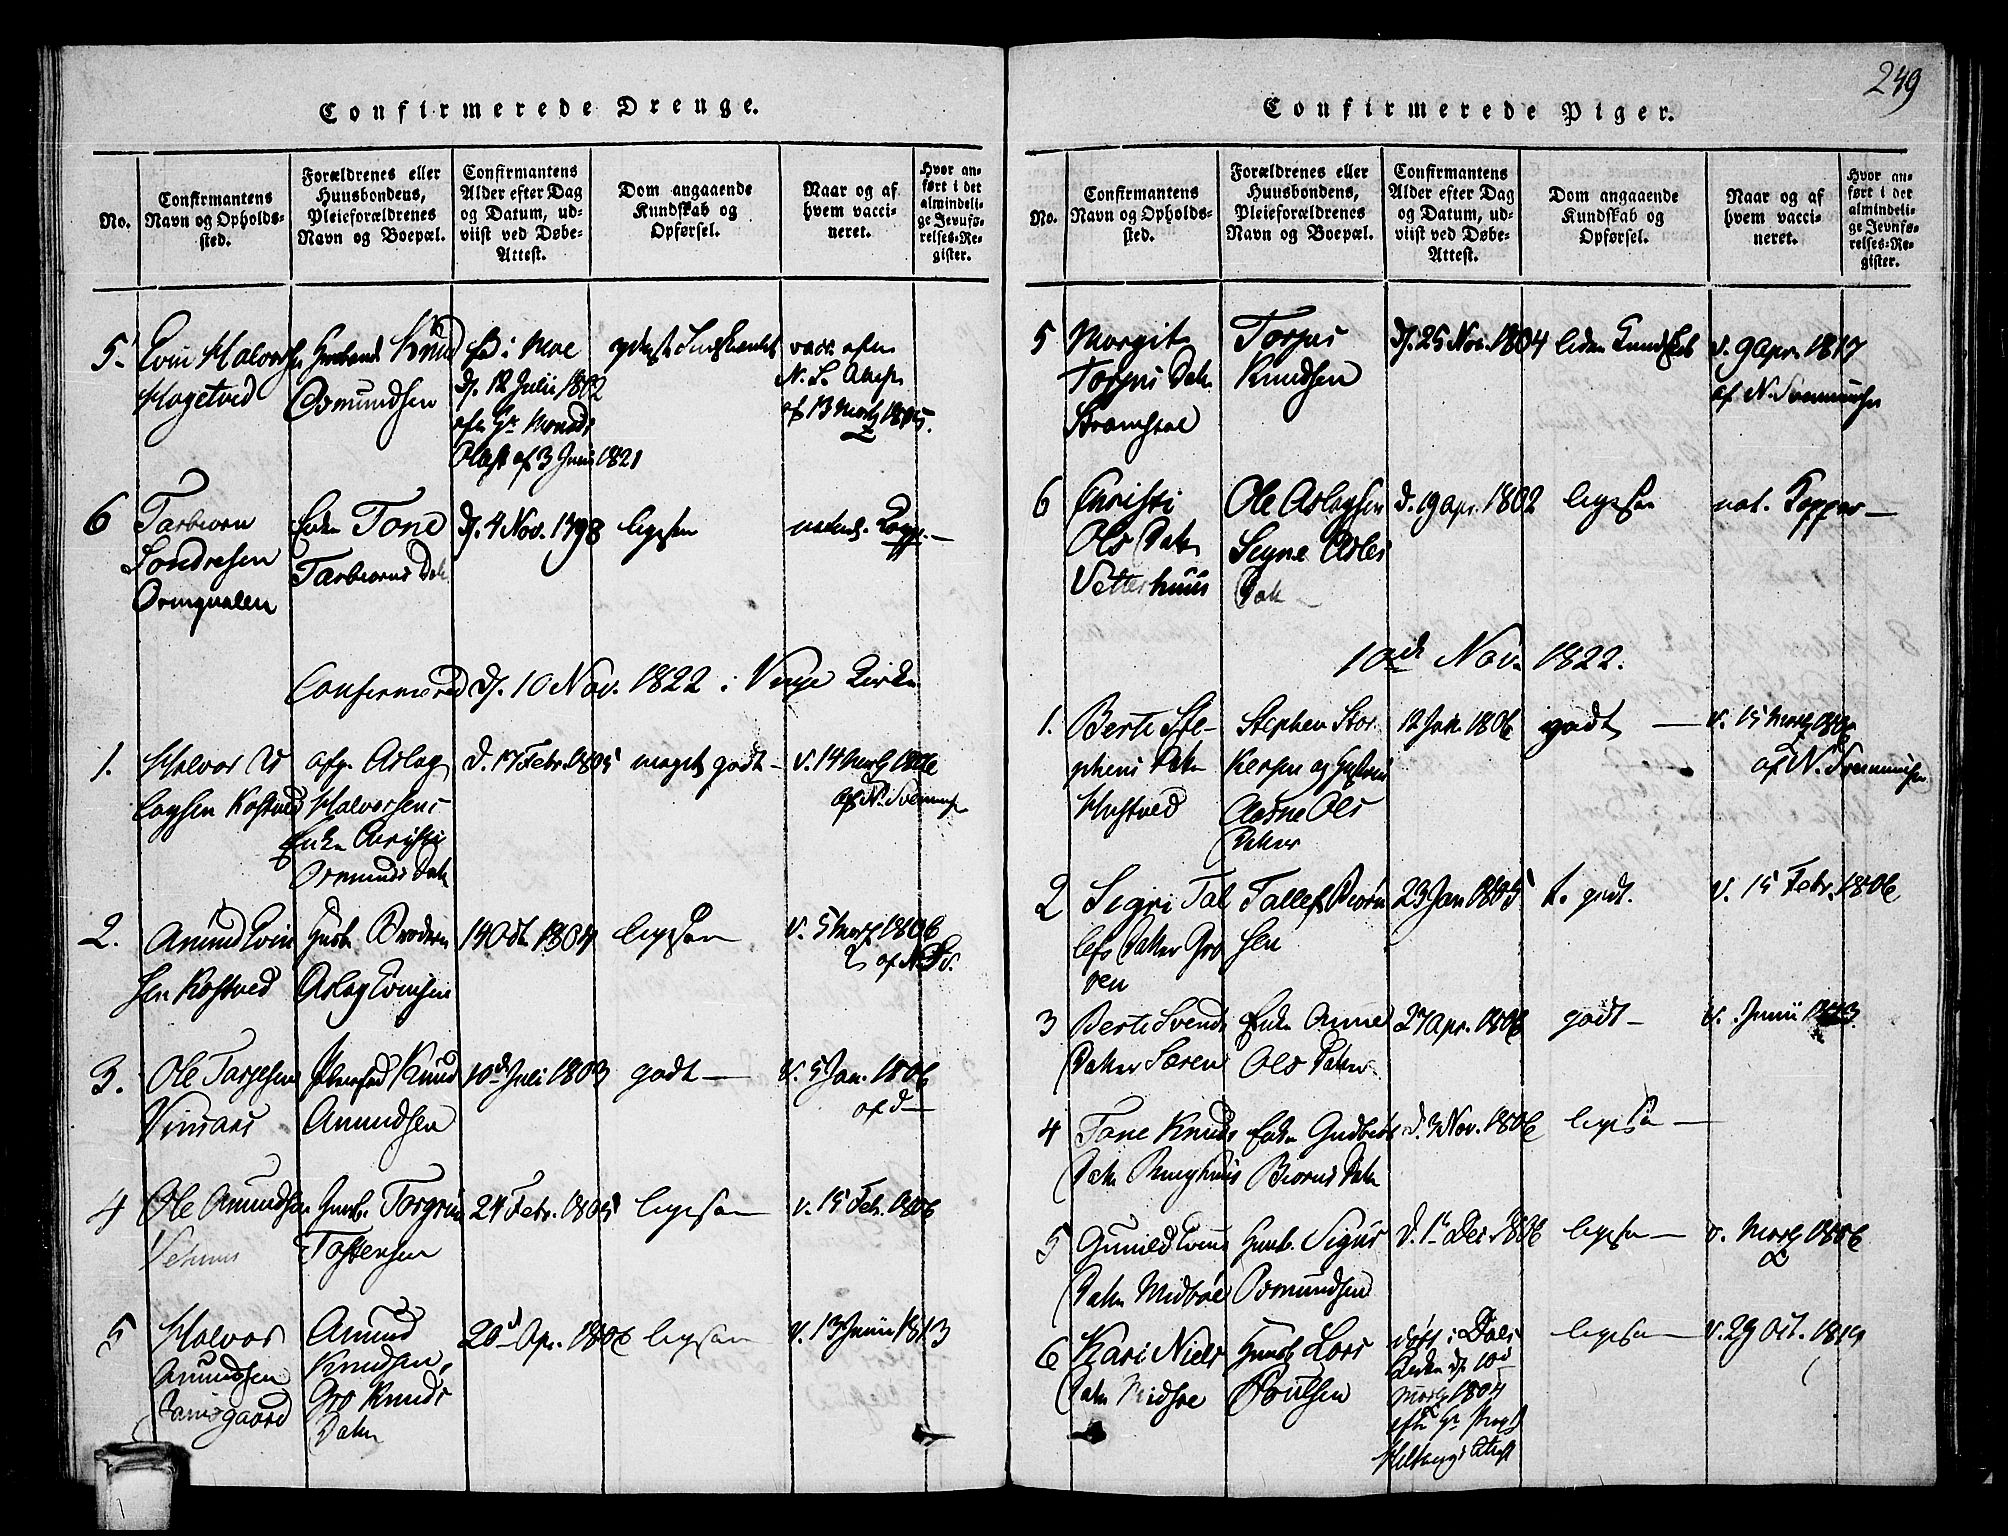 249
Confirmerede Drenge.
No.
Confirmantens
Navn og Opholds-
sted.
Forældrenes eller
Huusbondens,
Pleieforældrenes
Navn og Boepæl.
Confirmantens
Alder efter Dag
og Datum, ud-
viist ved Døbe-
Attest.
Dom angaaende
Kundskab og
Opførsel.
Naar og af
hvem vacci-
neret.
Hvor an-
ført i det
almindeli-
ge Jevnfø-
relses-Re-
gister.
5.
Evin Halvorsen
Hagetved
Knud
Osmundsen
fød i Moe
d. 12 Julii 1802
Attest af 3 Junii 1821
vacc. efter
N. S. Attest
af 13 Martz 1805.
6
Tarbiorn
Sondresen
Ormqvalen
Enke Tone
Tarbiorns Datr
d. 4 Nov. 1798
ligesaa
naturl. Kopp. —
Confirmered d. 10 Nov. 1822 i Vinje Kirke
1.
Halvor As
lagsen Kostved
afg. Aslag
Halvorsens
Enke Christi
Osmunds Datr
d. 17 Febr. 1805
meget godt —
v. 14 Martz 1806
af N. Svenningsen
2.
Amund Evin
sen Kostved
Broderen
Aslag Evinsen
14 Oct. 1804
ligesaa
v. 5 Martz 1806
af N. Sv.
3.
Ole Tarjesen
Vinsaas
Knud
Amundsen
10d Juli 1803
godt —
v. 5 Jan. 1806
af d —
4
Ole Amundsen
Vehuus
Husb. Torgrim
Tostensen
24 Febr. 1805
ligesaa
v. 15 Feb. 1806
5
Halvor
Amundsen
Amund
Knudsen,
Gro Knuds
Datter
20d Apr. 1806
ligesaa
v. 13 Junii 1813
Confirmerede Piger.
No.
Confirmantens
Navn og Opholds-
sted.
Forældrenes eller
Huusbondens,
Pleieforældrenes
Navn og Boepæl.
Confirmantens
Alder efter Dag
og Datum, ud-
viist ved Døbe-
Attest.
Dom angaaende
Kundskab og
Opførsel.
Naar og af
hvem vacci-
neret.
Hvor an-
ført i det
almindeli-
ge Jevnfø-
relses-Re-
gister.
5
Margit
Torjus Datr
Torjus
Knudsen
d. 25 Nov. 1804
liden Kundskab
v. 9 Apr. 1817
af N. Svenningsen
6
Christi
Ols Datr
Vetterhuus
Ole Aslagsen
Signe Asles
Datr —
d. 19 Apr. 1802
ligesaa
nat. Kopper —
10de Nov. 1822.
1.
Berte Ste-
phens Datr
Stephen Stor
Aasne Ols
Datter
12 Jan. 1806
godt —
v. 15 Martz 1806
af N. Svenningsen
2
Sigri Tal
lefs Datter Gro
ven
Tallef Biørn
sen
23 Jan. 1805
t. godt.
v. 15 Febr. 1806
3
Berte Svends
Datter Særen
Enke Anne
Ols Datter
27 Apr. 1806
godt —
v. Junii 1813.
4
Tone Knuds
Datr
Enke
Biorns Datr
d. 3 Nov. 1806
ligesaa —
5
Gunild Evins
Datr Midbøe
Husb. Sigur
Osmundsen
d. 1 Dec. 1806
ligesaa —
v. Martz 1806
6
Kari Niels
Datr
Husb. Lars
Poulsen
døbt i Dals
Kirke d. 10d
Martz 1804
efter Hr
Attest
ligesaa —
v. 29 Oct. 1819